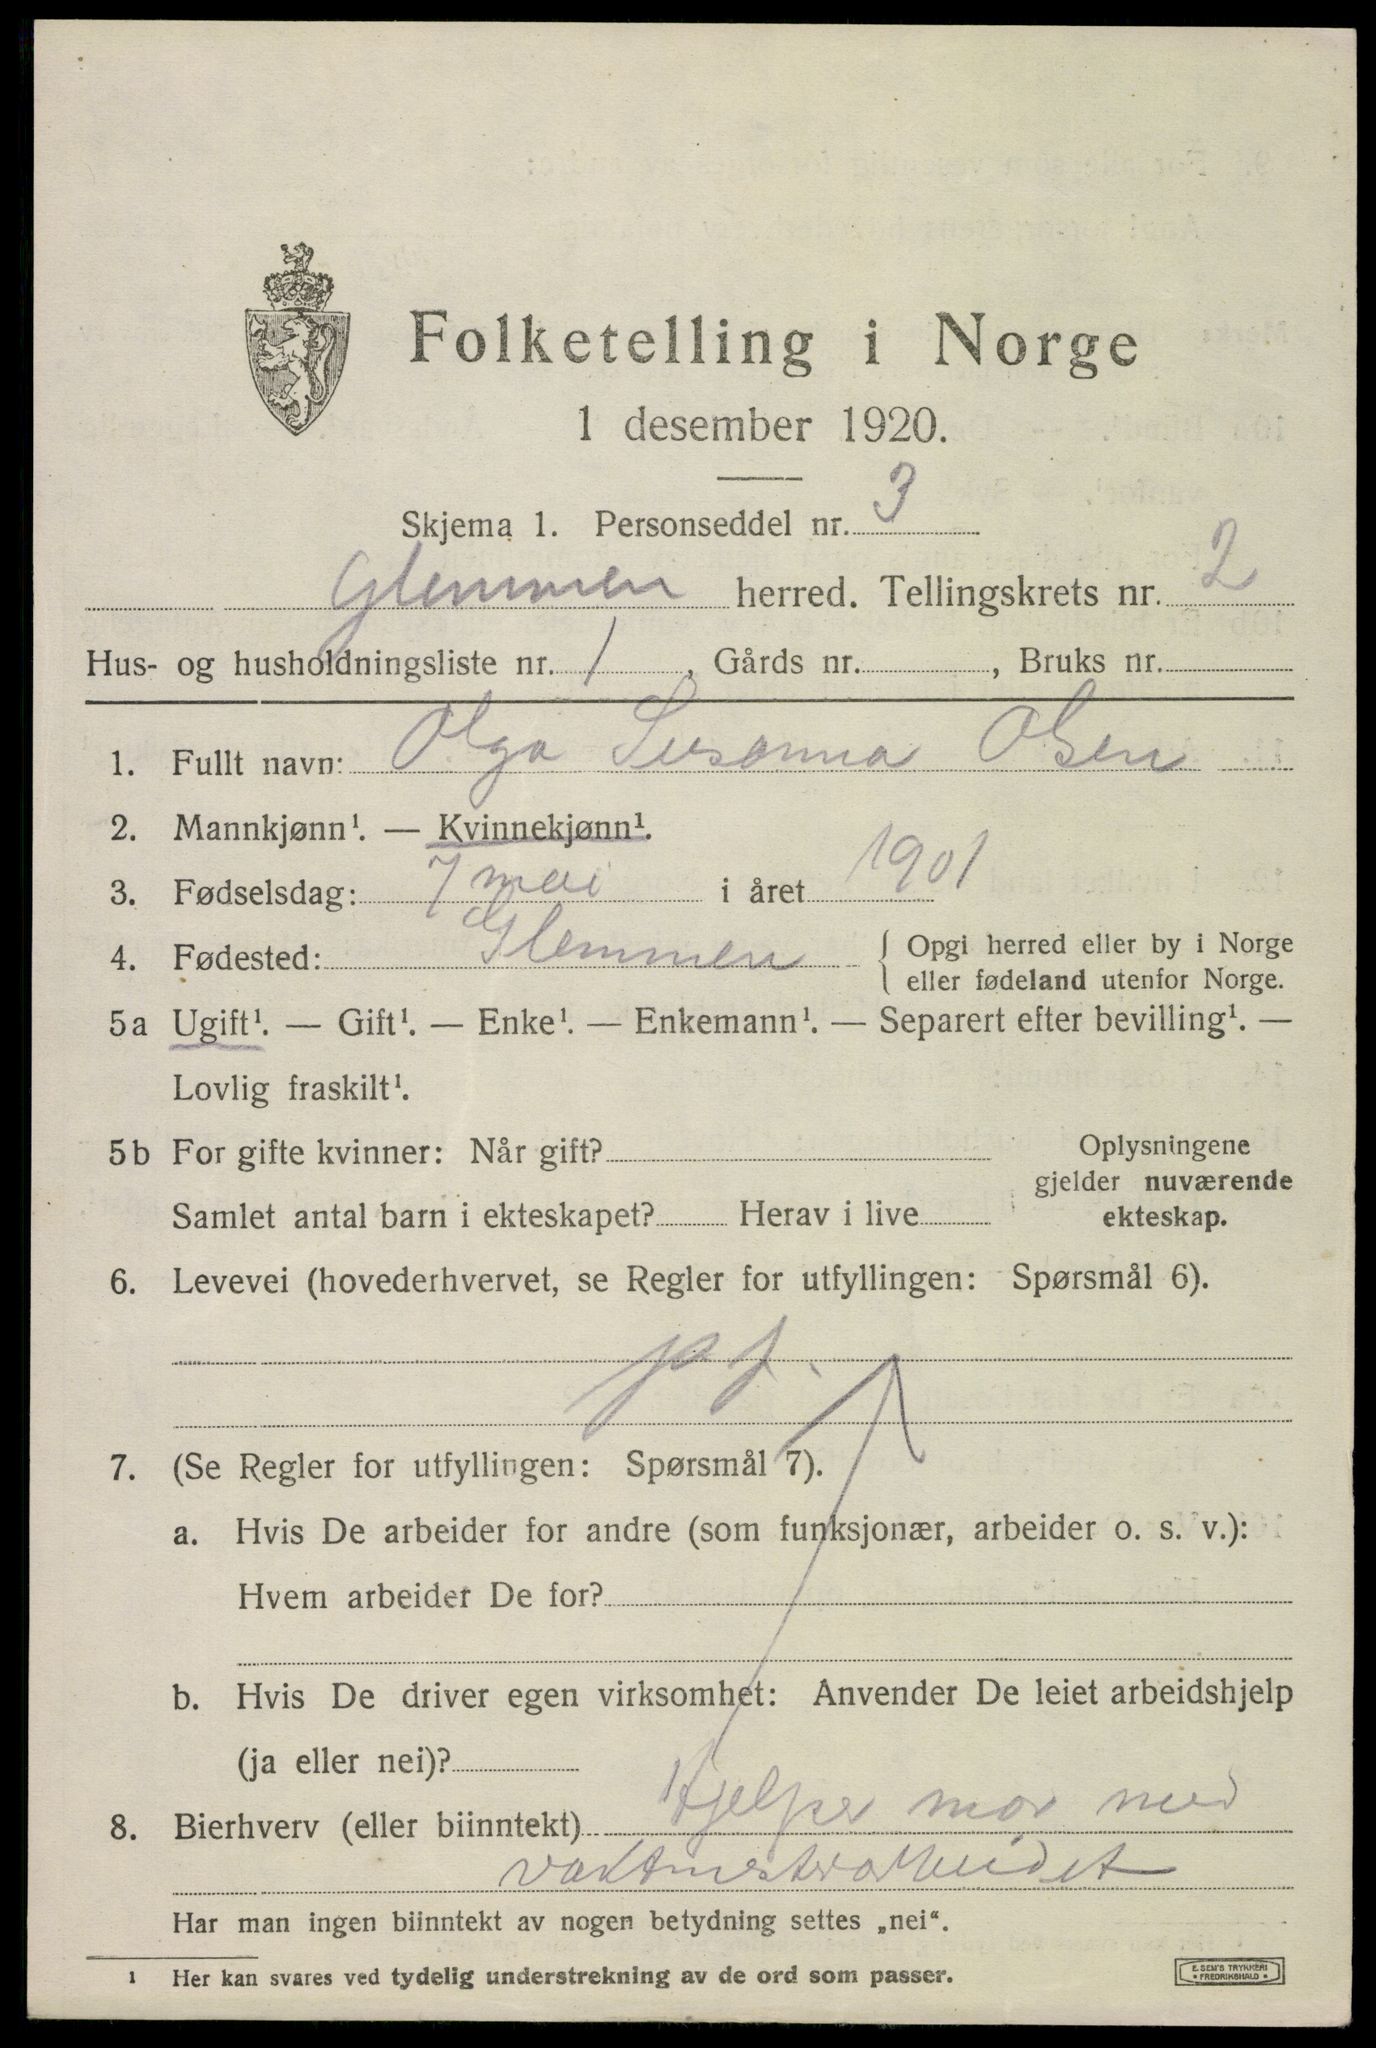 Folketelling i Norge
1 desember 1920.
Skjema 1. Personseddel nr. 3
Glemmen herred. Tellingskrets nr. 2
Hus- og husholdningsliste nr. 1, Gårds nr. , Bruks nr.
1. Fullt navn: Olga Susanna Olsen
2. Mannkjønn¹. — Kvinnekjønn¹.
3. Fødselsdag: 7 mai i året 1901
4. Fødested: Glemmen { Opgi herred eller by i Norge
eller fødeland utenfor Norge.
5a Ugift¹. — Gift¹. — Enke¹. — Enkemann¹. — Separert efter bevilling¹. —
Lovlig fraskilt¹.
5b For gifte kvinner: Når gift?
Samlet antal barn i ekteskapet? Herav i live
Oplysningene
gjelder nuværende
ekteskap.
6. Levevei (hovederhvervet, se Regler for utfyllingen: Spørsmål 6).
7. (Se Regler for utfyllingen: Spørsmål 7).
a. Hvis De arbeider for andre (som funksjonær, arbeider o. s. v.):
Hvem arbeider De for?
b. Hvis De driver egen virksomhet: Anvender De leiet arbeidshjelp
(ja eller nei)?
8. Bierhverv (eller biinntekt) Hjelper mor med
vaktmesterarbeidet
Har man ingen biinntekt av nogen betydning settes „nei“.
¹ Her kan svares ved tydelig understrekning av de ord som passer.
E. SEM'S TRYKKERI
FREDRIKSHALD